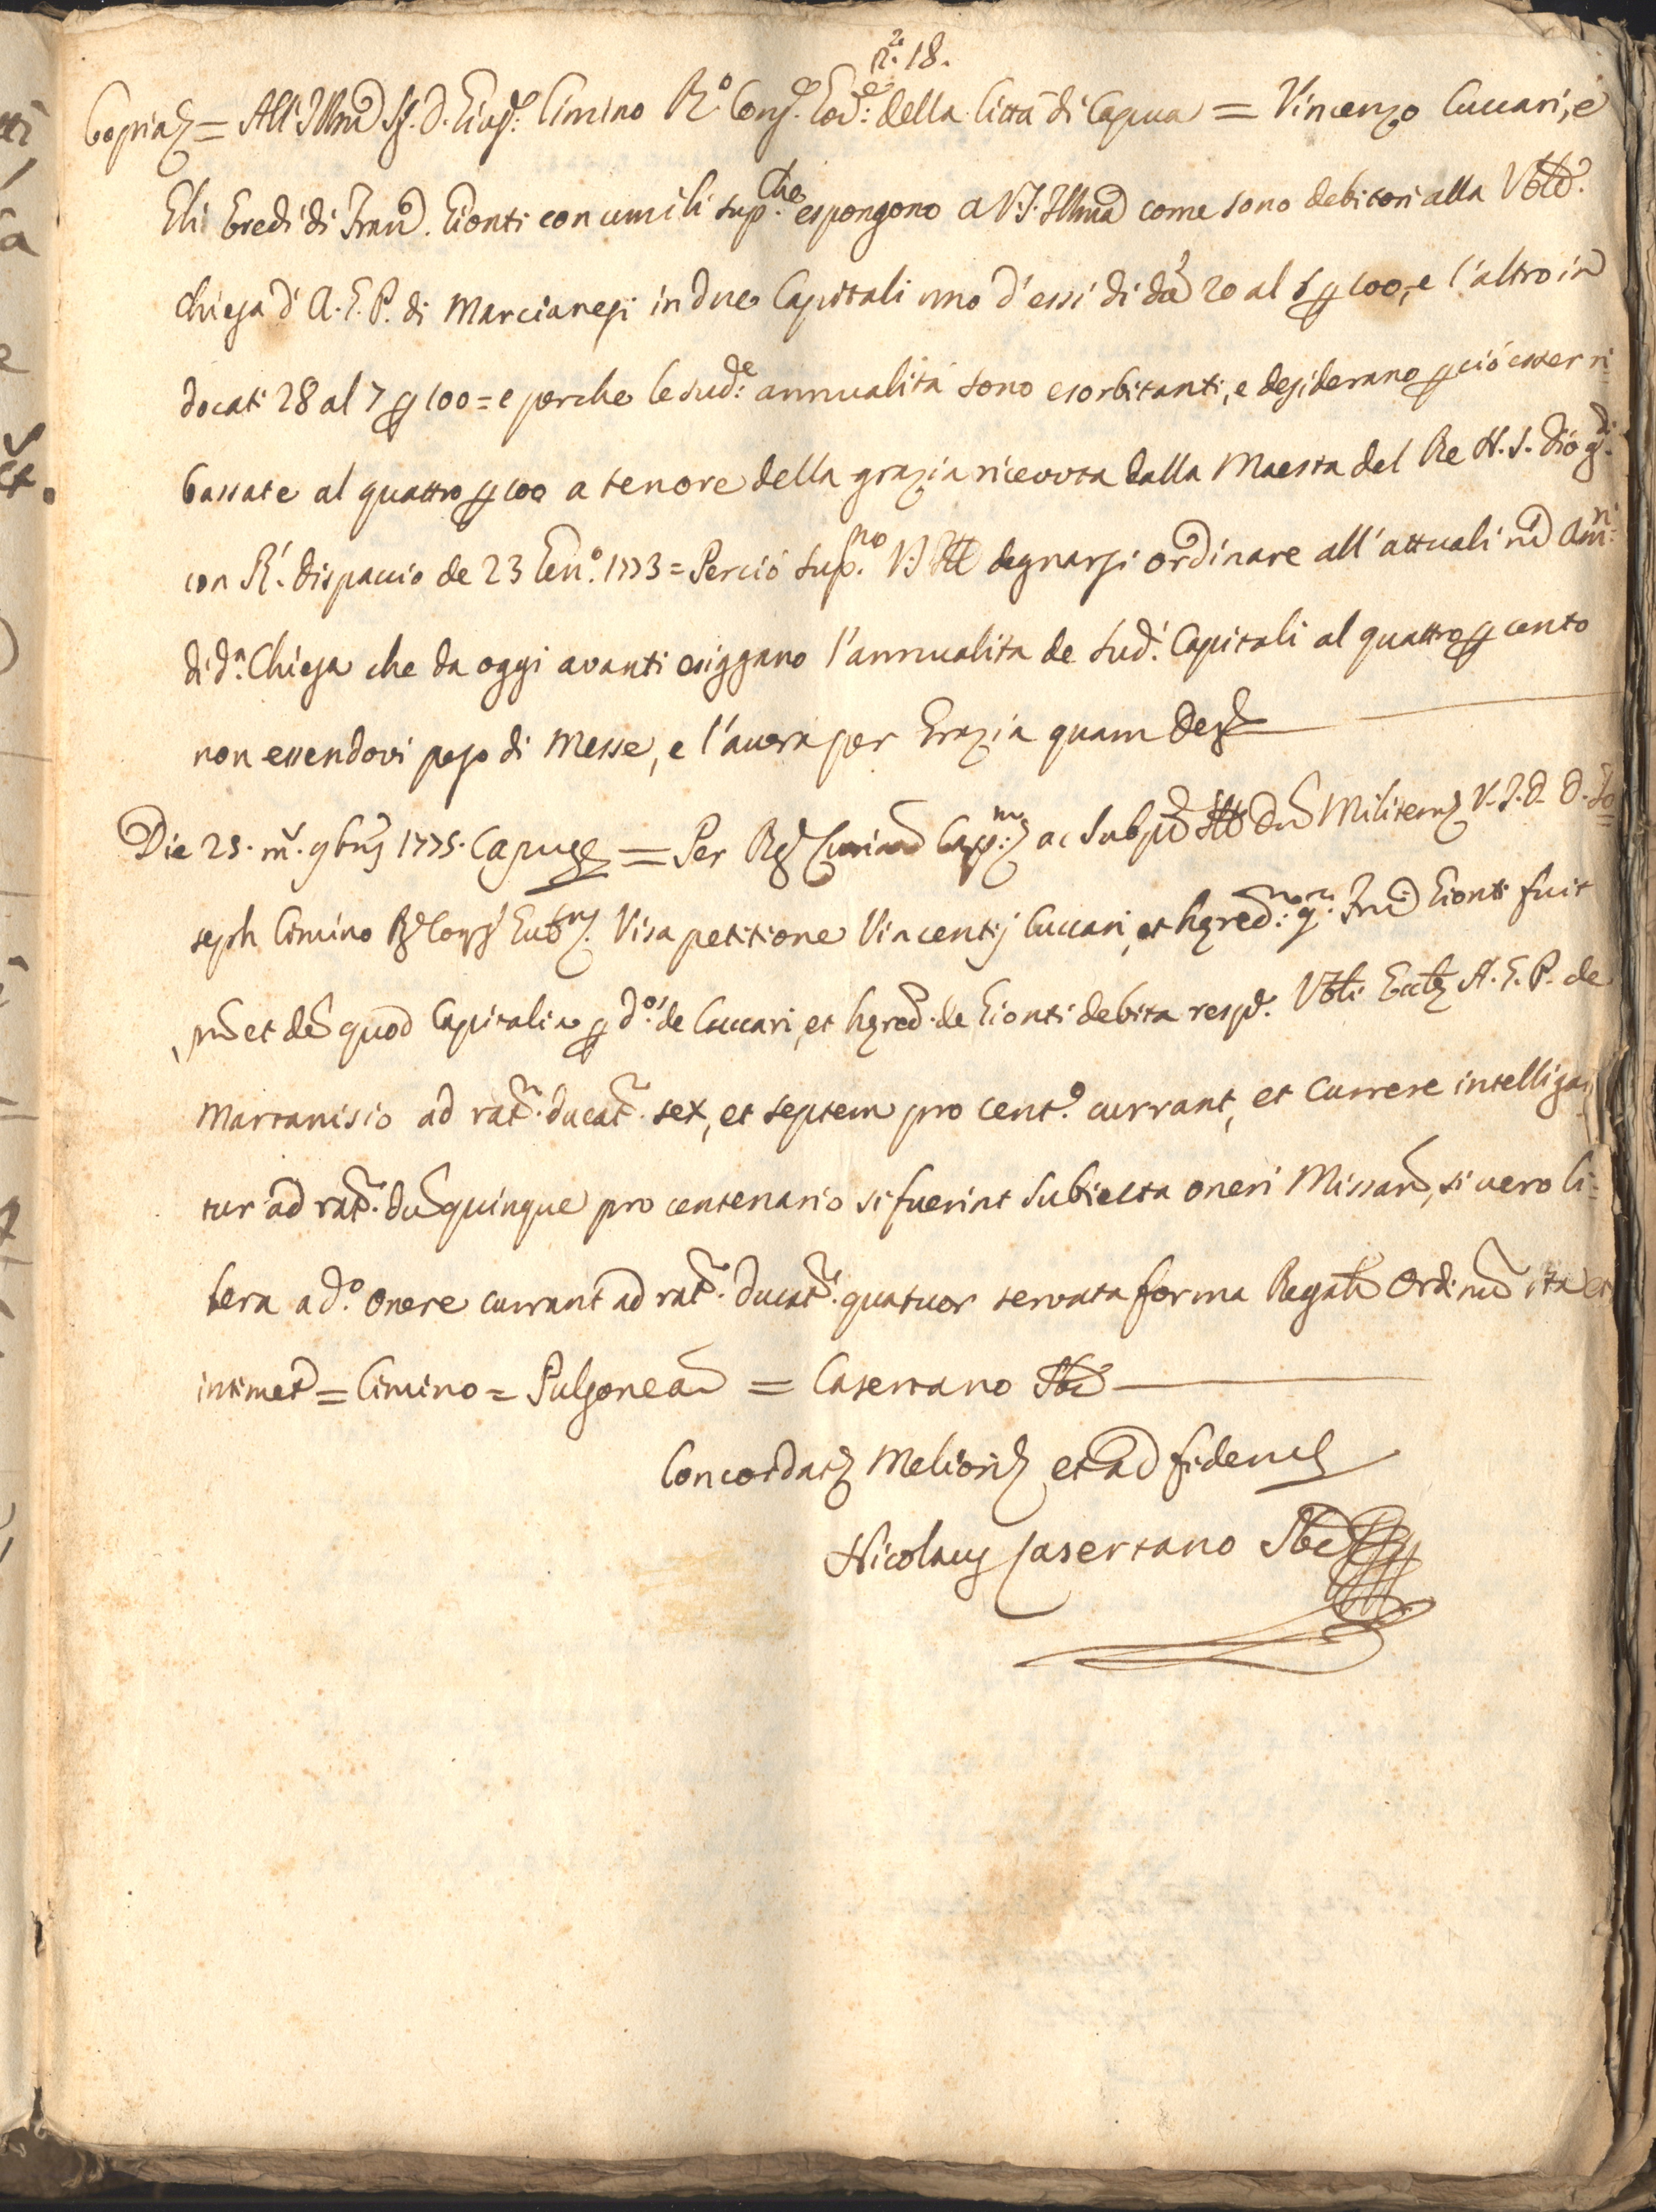 n.º 18.
Copia = All' Illmo Sig. D. Gius.e Cimino R.º Cons. Gov.e della Città di Capua = Vincenzo Cuccari, e
Gli Eredi di Fran.co Gionti con umili sup.che espongono a V.S. Illma come sono debitori alla Vble
Chiesa d' A. G. P. di Marcianesi in due Capitali uno d' essi di d.ti 20 al 6 p 100, e l'altro in
docati 28 al 7 p 100 = e perche le sud.e annualità sono esorbitanti, e desiderano p ciò esser ri=
bassate al quattro p 100 a tenore della grazia ricevuta dalla Maestà del Re N. S. Dio g.di
con R.l dispaccio de 23 Gen.º 1773 = Perciò sup.no V.S. Illma degnarsi ordinare all' attuali mci Am.ri
di d.a Chiesa che da oggi avanti esiggano l'annualità de sud.i Capitali al quattro p cento
non essendovi peso di Messe, e l'avera per Grazia quam Deus
Die 25. m. 9bris 1775. Capuae = Per Reg. Curiam Cap.m ac Subptum Illm Dnm Militem V.J.D. D. Jo=
seph Cimino Reg. Cons. Gub.rem Visa petitione Vincentij Cuccari, et hered.m q.m Fran.ci Gionti fuit
pm et dem quod Capitalia p d.os de Cuccari, et hered. de Gionti debita resp.e Vbli Eccle A. G. P. de
Martanisio ad rat.m ducat.m sex, et septem pro cent.º currant, et currere intelligan
tur ad rat.m duc.m quinque pro centenario si fuerint subiecta oneri Missarum, si vero li=
bera a d.º onere currant ad rat.m ducat.m quatuor servata forma Regalium Ordinum ita et
intimet.r = Cimino = Pulsone a.m = Casertano Sba
Concordat Meliori et ad fidem
Nicolaus Casertano Sba